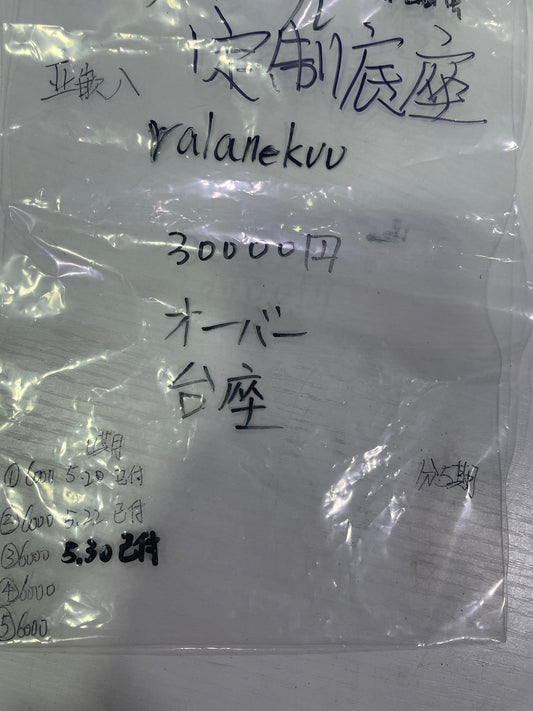 定制底座
亚嵌入
ralanekuu
30000円
オーバー
台座
分5期
①6000 5.20 已付
②6000 5.22 已付
③6000 5.30已付
④6000
⑤6000